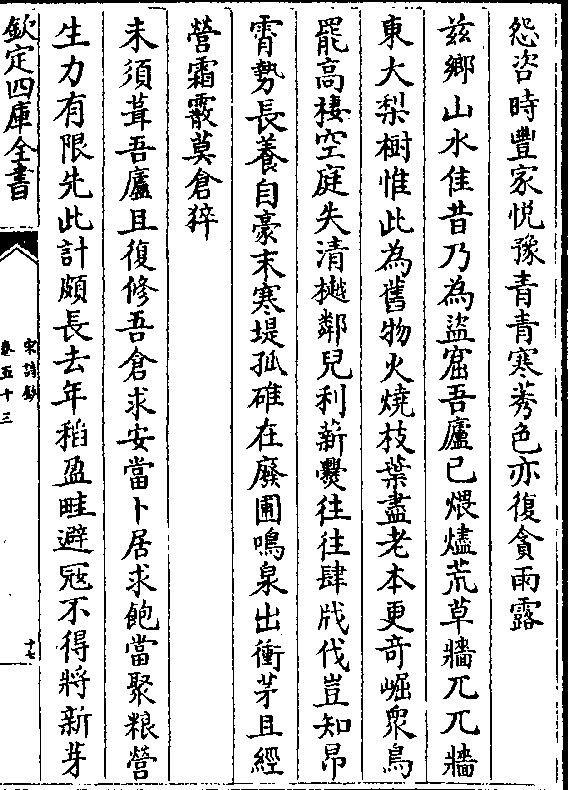 怨咨時豐家悅豫青青寒莠色亦復貪雨露
茲鄉山水佳昔乃為盜窟吾廬已煨燼荒草牆兀兀牆
東大梨樹惟此為舊物火燒枝葉盡老本更奇崛眾鳥
罷高棲空庭失清樾鄰兒利薪爨往往肆戕伐豈知昂
霄勢長養自豪末寒堤孤碓在廢圃鳴泉出衝茅且經
營霜霰莫倉猝
未須葺吾廬且復修吾倉求安當卜居求飽當聚粮營
生力有限先此計頗長去年稻盈畦避冦不得將新芽
欽定四庫全書
宋詩鈔
卷五十三
十七